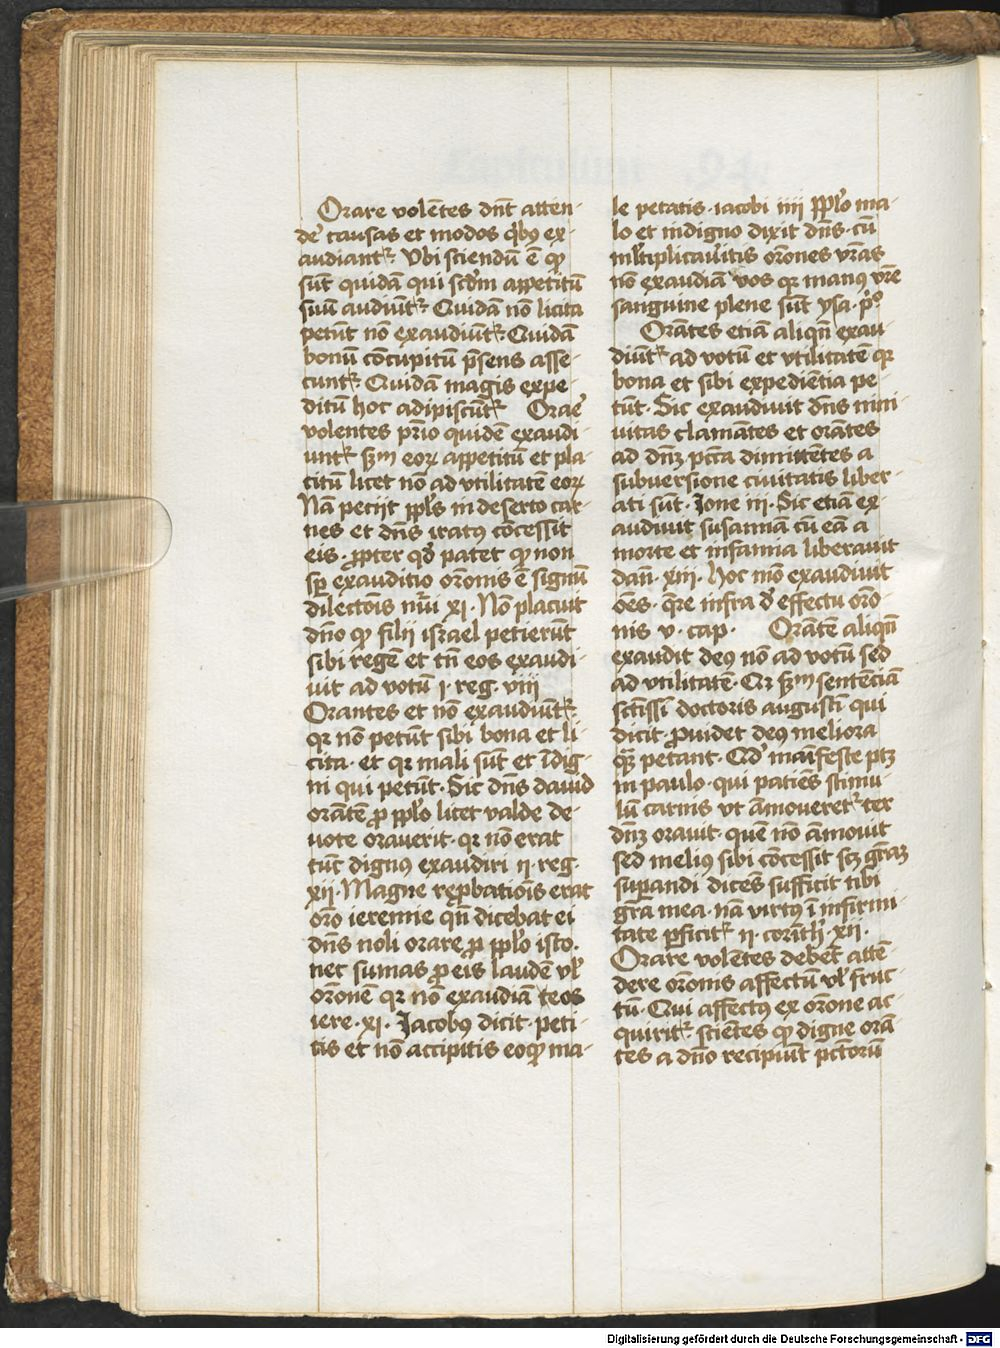 Orare vole̅tes dn̅t atten-
de᷒ causas et modos q̇bꝯ ex-
audiantꝛ. Vbi sciendu̅ e̅ qꝫ
su̅t quida̅ qui scd̅m appetitu̅
suu̅ audiu̅tꝛ. Quida̅ no̅ licita
petu̅t no̅ exaudiu̅tꝛ. Quida̅
bonu̅ co̅cupitu̅ p̅sens asse-
cuntꝛ. Quida̅ magis expe-
ditu̅ hoc adipiscu̅tꝛ Orae᷒
volentes pr̅io quide̅ exaudi
untꝛ sꝫm eoꝝ appetitu̅ et pla-
citu̅ licet no̅ ad vtilitate̅ eoꝝ
Na̅ petijt ppl̅s in deserto car-
nes et dn̅s iratꝯ co̅cessit
eis. ꝓpter qd̅ patet qꝫ non
sꝑ exauditio oro̅nis e̅ signu̅
dilecto̅is nu̅i xi. No̅ placuit
dn̅o qꝫ filij israel petieru̅t
sibi rege̅ et tn̅ eos exaudi-
uit ad votu̅ i. reg. viii
Orantes et no̅ exaudiu̅tꝛ.
qꝛ no̅ petu̅t sibi bona et li-
cita. et qꝛ mali su̅t et i̅dig-
ni qui petu̅t. Sic dn̅s dauid
ora̅te̅ ꝓ ppl̅o licet valde de-
uote orauerit. qꝛ no̅ erat
tu̅c dignꝯ exaudiri ij. reg.
xij. Magne reꝓbatio̅is erat
oro̅ ieremie qn̅ dicebat ei
dn̅s noli orare ꝓ ppl̅o isto.
nec sumas ꝓ eis laude̅ vl̅
oro̅ne̅ qꝛ no̅ exaudia̅ te os
iere. xi. Jacobꝯ dicit. peti-
tis et no̅ accipitis eo qꝫ ma-
le petatis. iacobi iiij ppl̅o ma-
lo et indigno dixit dn̅s. cu̅
ml̅tiplicau̅itis oro̅nes vr̅as
no̅ exaudia̅ vos qꝛ manꝯ vr̅e
sanguine plene su̅t ysa. pº.
Ora̅tes etia̅ aliqn̅ exau-
diu̅tꝛ ad votu̅ et vtilitate̅ qꝛ
bona et sibi expedie̅tia pe-
tu̅t. Sic exaudiuit dn̅s nini-
uitas clama̅tes et ora̅tes
ad dn̅ꝫ pct̅a dimitte̅tes a
subuersione ciuitatis liber-
ati su̅t. Jone iij. Sic etia̅ ex-
audiuit susanna̅ cu̅ ea̅ a
morte et infamia liberauit
dan̅. xiij. hoc mo̅ exaudiuit
o̅es. q̅re infra d᷒ effectu oro̅-
nis v. cap. Ora̅te̅ aliqn̅
exaudit deꝯ no̅ ad votu̅ sed
ad vtilitate̅. Qꝛ sꝫm sente̅cia̅
sct̅issi̅ doctoris augusti̅ qui
dicit. ꝓuidet deꝯ meliora
qꝫ̅ petant. Qd᷒ manifeste ptꝫ
in paulo. qui patie̅s stimu-
lu̅ carnis vt a̅moueretꝛ ter
dn̅ꝫ orauit. que̅ no̅ a̅mouit
sed meliꝯ sibi co̅cessit scꝫ gr̅aꝫ
suꝑandi dice̅s sufficit tibi
gr̅a mea. na̅ virtꝯ i̅ infirmi-
tate ꝑficitꝛ ij. cori̅th. xij.
Orare volentes debe̅t atte̅-
dere oro̅nis affectu̅ vl̅ fruc-
tu̅. Qui affectꝯ ex oro̅ne ac-
quiritꝛ. scie̅tes qꝫ digne ora̅-
tes a dn̅o recipiu̅t pct̅oru̅
Digitalisierung gefördert durch die Deutsche Forschungsgemeinschaft - DFG